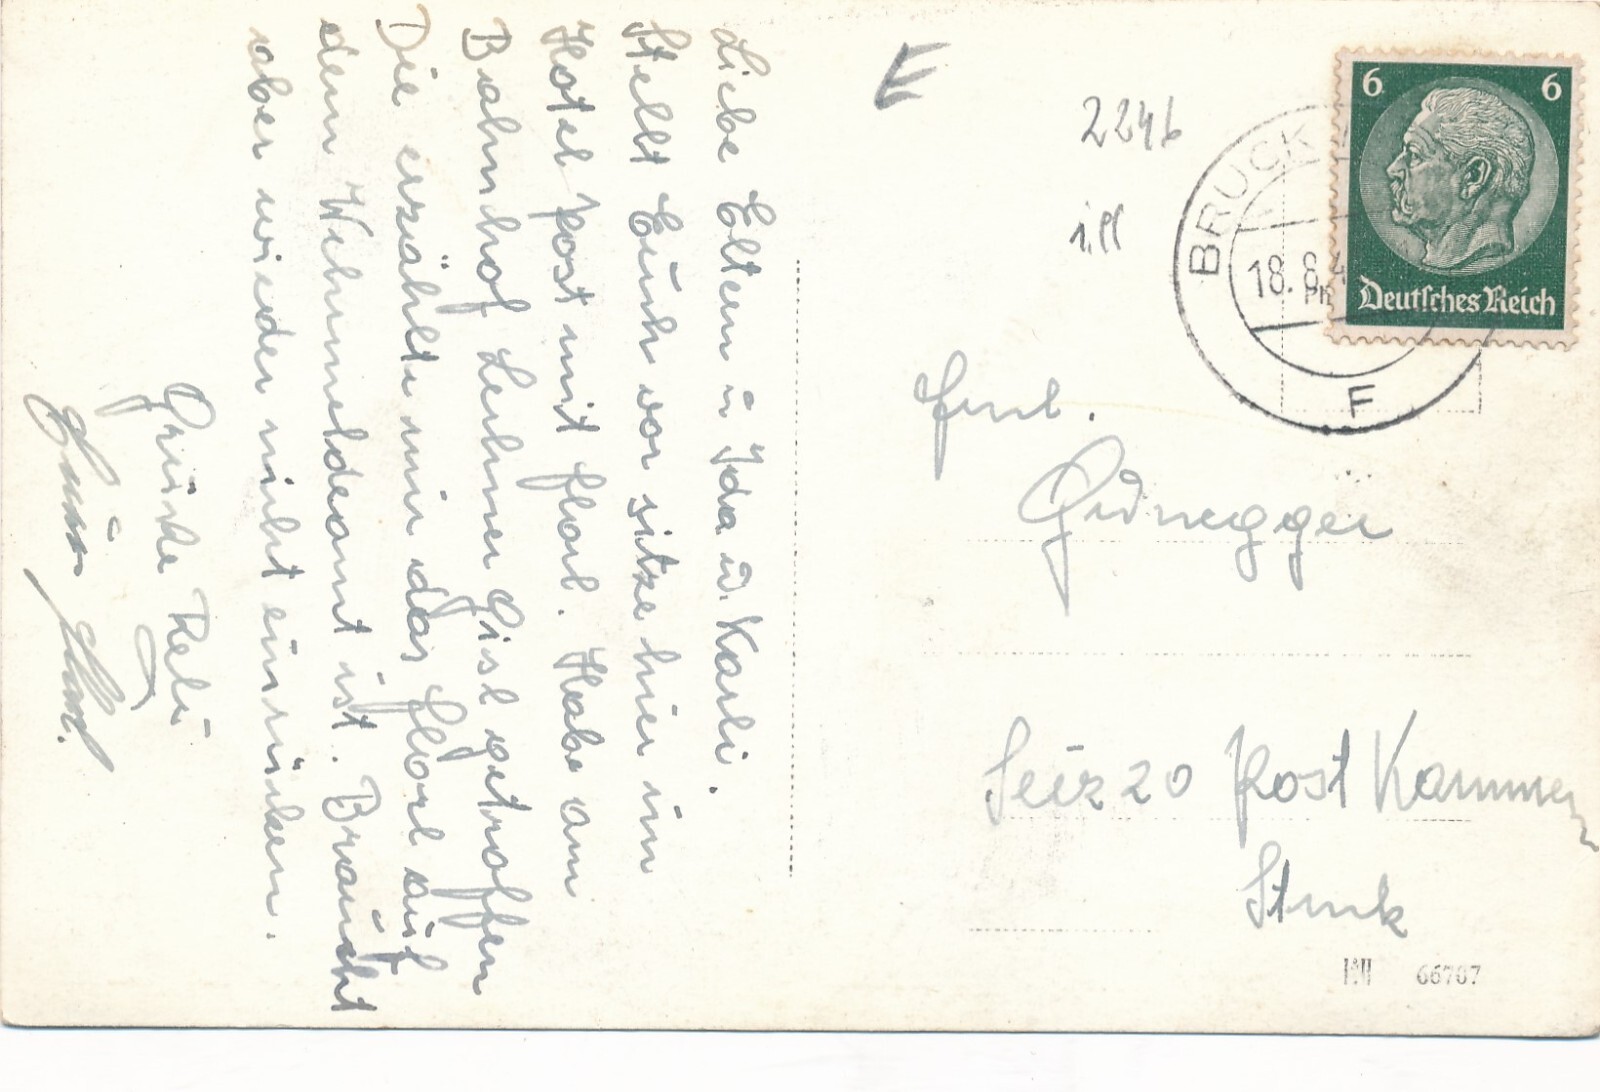 Liebe Eltern u Ida u. Karli.
Stellt Euch vor sitze hier im
Hotel Post mit Florl. Habe am
Bahnhof Lechner Gisl getroffen
Die erzählte mir das Florl auf
dem Wehrmeldeamt ist. Braucht
aber wieder nicht einrücken.
Grüße
2246
ill
BRUCK
18. 8. 4
F
6 6
Deutsches Reich
Faml.
Seiz 20 Post Kammern
Stmk
66767